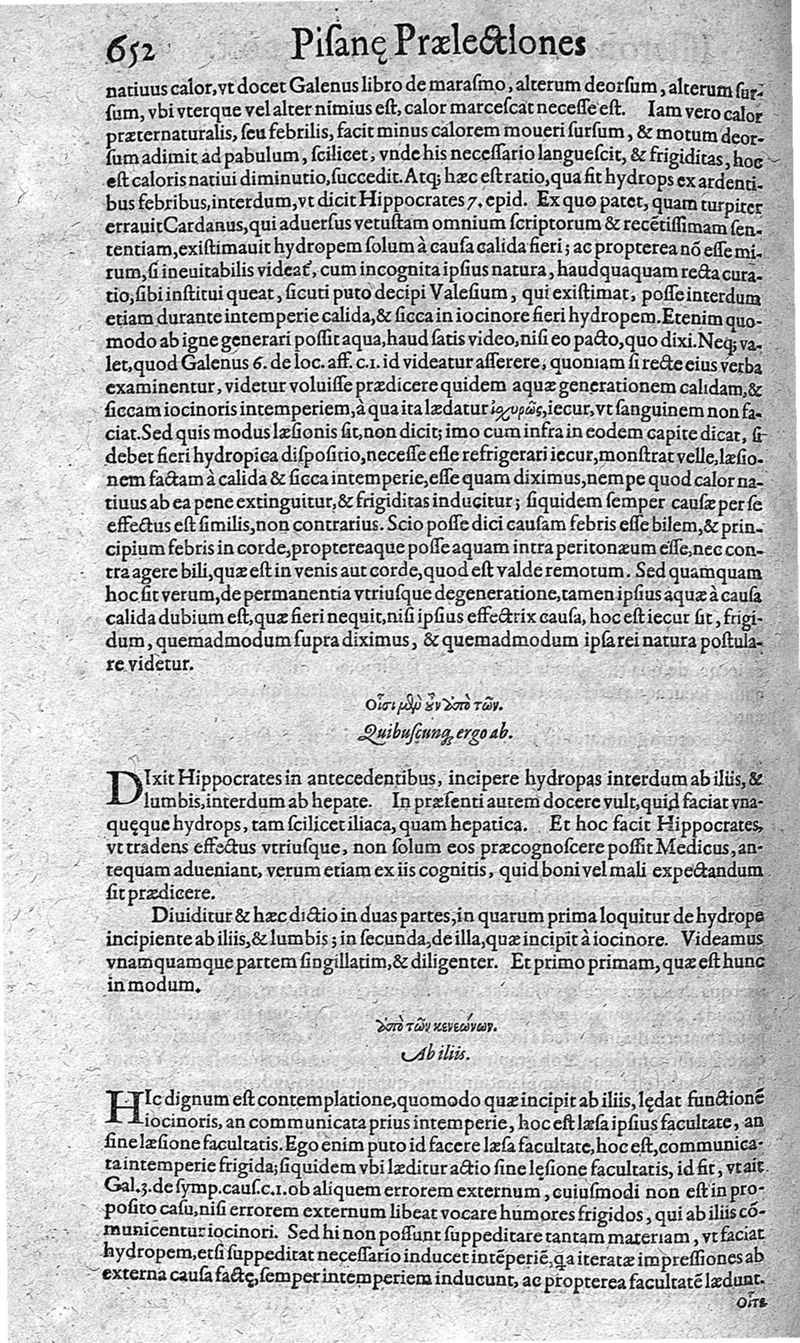 652 Piſanę Prælectiones
natiuus calor, vt docet Galenus libro de maraſmo, alterum deorſum, alterum ſur-
ſum, vbi vterque vel alter nimius eſt, calor marceſcat neceſſe eſt. Iam vero calor
præternaturalis, ſeu febrilis, facit minus calorem moueri ſurſum, & motum deor-
ſum adimit ad pabulum, ſcilicet, vnde his neceſſario langueſcit, & frigiditas, hoc
eſt caloris natiui diminutio, ſuccedit. Atq; hæc eſt ratio, qua fit hydrops ex ardenti-
bus febribus, interdum, vt dicit Hippocrates 7. epid. Ex quo patet, quam turpiter
errauit Cardanus, qui aduerſus vetuſtam omnium ſcriptorum & recētiſſimam ſen-
tentiam, exiſtimauit hydropem ſolum à cauſa calida fieri; ac propterea nō eſſe mi-
rum, ſi ineuitabilis videat', cum incognita ipſius natura, haudquaquam recta cura-
tio, ſibi inſtitui queat, ſicuti puto decipi Valeſium, qui exiſtimat, poſſe interdum
etiam durante intemperie calida, & ſicca in iocinore fieri hydropem. Etenim quo-
modo ab igne generari poſſit aqua, haud ſatis video, niſi eo pacto, quo dixi. Neq; va-
let, quod Galenus 6. de loc. aff. c. 1. id videatur aſſerere, quoniam ſi recte eius verba
examinentur, videtur voluiſſe prædicere quidem aquæ generationem calidam, &
ſiccam iocinoris intemperiem, à qua ita lædatur ἰσχυρῶς, iecur, vt ſanguinem non fa-
ciat. Sed quis modus læſionis ſit, non dicit; imo cum infra in eodem capite dicat, ſi
debet fieri hydropica diſpoſitio, neceſſe eſſe refrigerari iecur, monſtrat velle, læſio-
nem factam à calida & ſicca intemperie, eſſe quam diximus, nempe quod calor na-
tiuus ab ea pene extinguitur, & frigiditas inducitur; ſiquidem ſemper cauſæ per ſe
effectus eſt ſimilis, non contrarius. Scio poſſe dici cauſam febris eſſe bilem, & prin-
cipium febris in corde, proptereaque poſſe aquam intra peritonæum eſſe, nec con-
tra agere bili, quæ eſt in venis aut corde, quod eſt valde remotum. Sed quamquam
hoc ſit verum, de permanentia vtriuſque degeneratione, tamen ipſius aquæ à cauſa
calida dubium eſt, quæ fieri nequit, niſi ipſius effectrix cauſa, hoc eſt iecur ſit, frigi-
dum, quemadmodum ſupra diximus, & quemadmodum ipſa rei natura poſtula-
re videtur.
Οἷσι μὲν οὖν ἀπὸ τῶν.
Quibuſcunq; ergo ab.
DIxit Hippocrates in antecedentibus, incipere hydropas interdum ab iliis, &
lumbis, interdum ab hepate. In præſenti autem docere vult, quid faciat vna-
quęque hydrops, tam ſcilicet iliaca, quam hepatica. Et hoc facit Hippocrates,
vt tradens effectus vtriuſque, non ſolum eos præcognoſcere poſſit Medicus, an-
tequam adueniant, verum etiam ex iis cognitis, quid boni vel mali expectandum
ſit prædicere.
Diuiditur & hæc dictio in duas partes, in quarum prima loquitur de hydrope
incipiente ab iliis, & lumbis; in ſecunda, de illa, quæ incipit à iocinore. Videamus
vnamquamque partem ſingillatim, & diligenter. Et primo primam, quæ eſt hunc
in modum.
ἀπὸ τῶν κενεώνων.
Ab iliis.
HIc dignum eſt contemplatione, quomodo quæ incipit ab iliis, lędat functionē
iocinoris, an communicata prius intemperie, hoc eſt læſa ipſius facultate, an
ſine læſione facultatis. Ego enim puto id facere læſa facultate, hoc eſt, communica-
ta intemperie frigida; ſiquidem vbi læditur actio ſine lęſione facultatis, id fit, vt ait
Gal. 3. de ſymp. cauſ. c. 1. ob aliquem errorem externum, cuiuſmodi non eſt in pro-
poſito caſu, niſi errorem externum libeat vocare humores frigidos, qui ab iliis cō-
municentur iocinori. Sed hi non poſſunt ſuppeditare tantam materiam, vt faciat
hydropem, etſi ſuppeditat neceſſario inducet intēperiē, qa iteratæ impreſſiones ab
externa cauſa factę, ſemper intemperiem inducunt, ac propterea facultatē lædunt.
Οἷτε